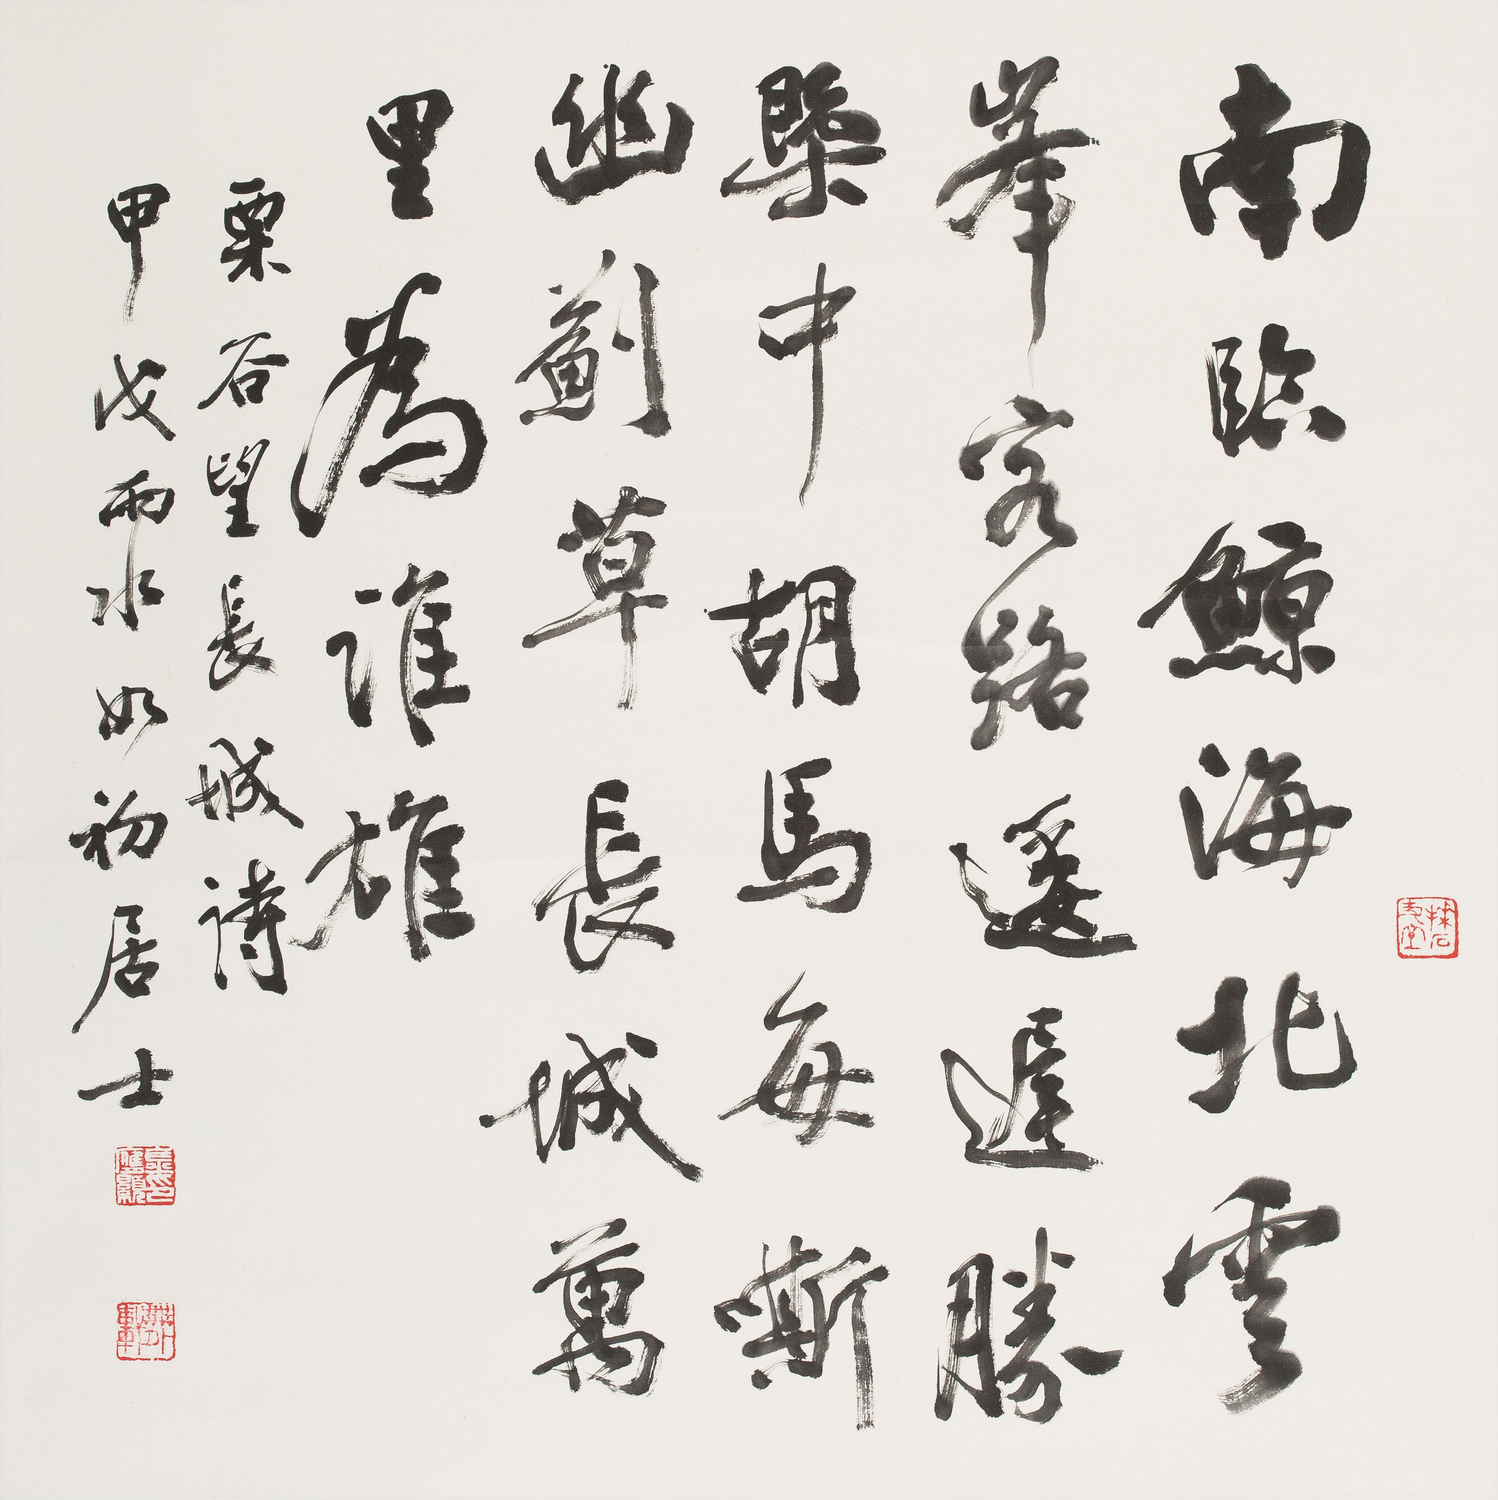 南臨鯨海北雲
峯客路逶遲勝
槩中胡馬每嘶
幽薊草長城萬
里為誰雄
栗谷望長城詩
甲戌雨水如初居士